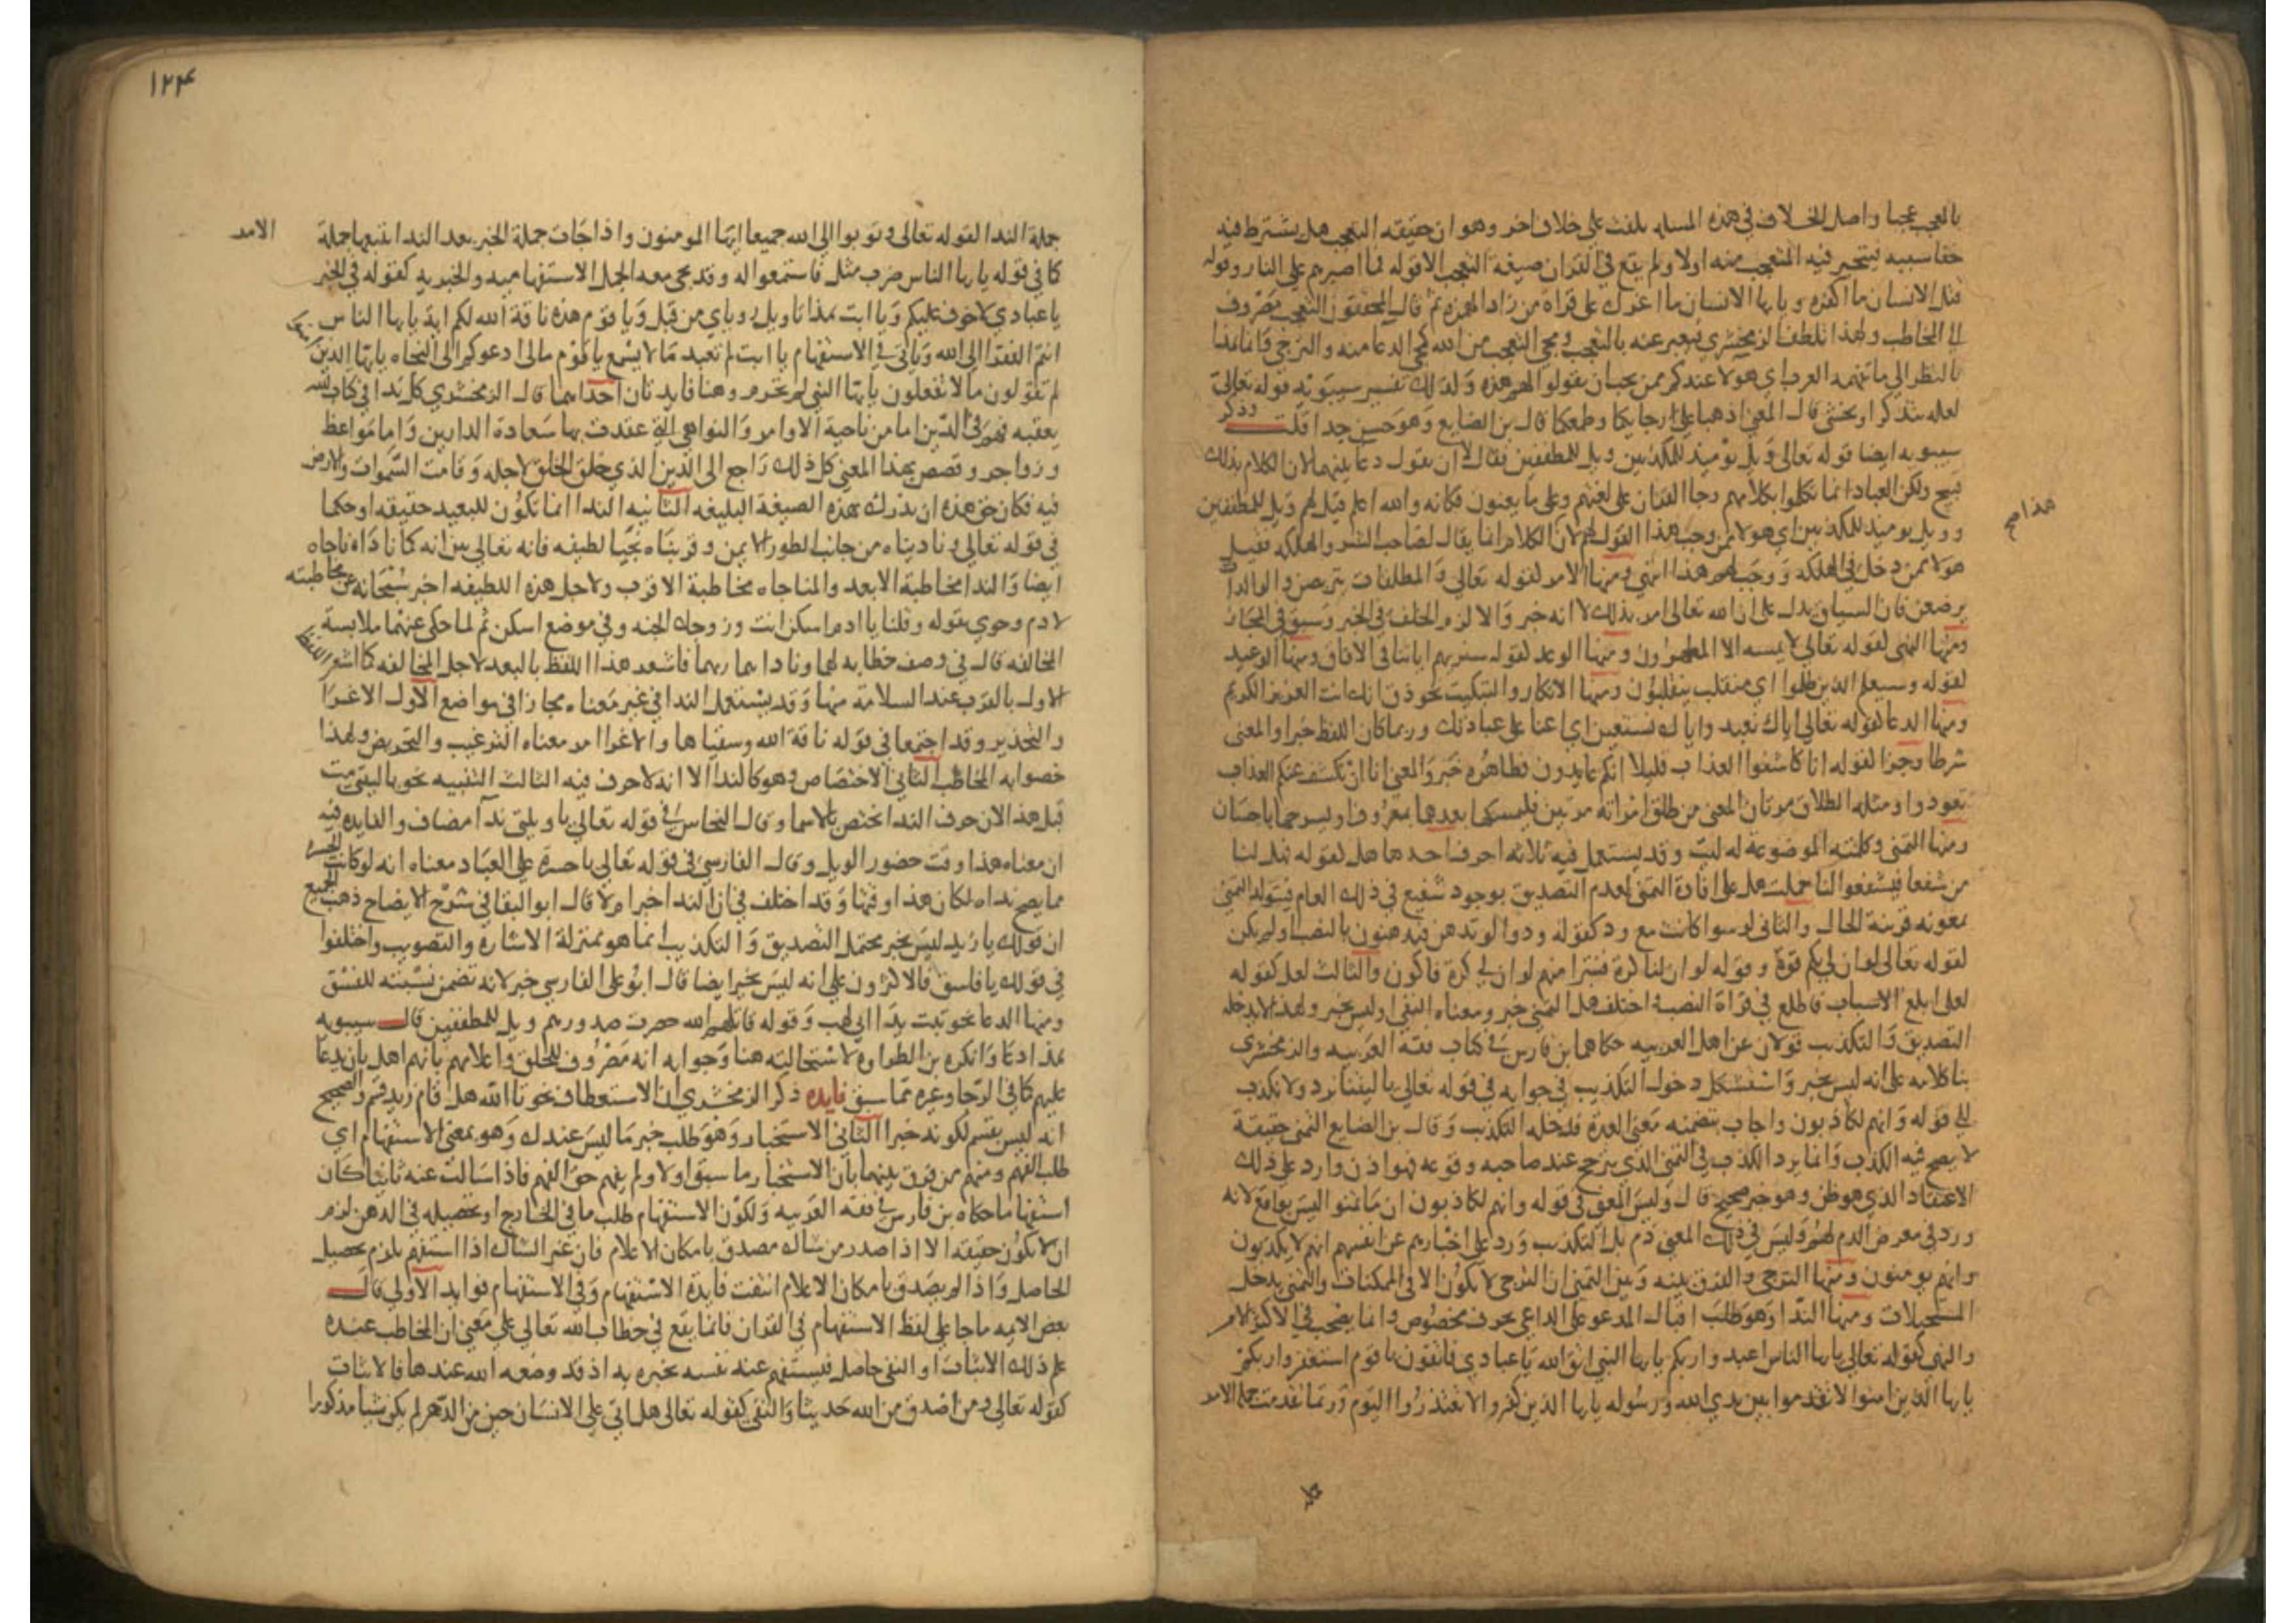 بالعجب عجبا واصل الخلاف في هذه المسله يلتفت على خلاف اخر وهو ان حقيقه التعجب هل يشترط فيه
خفا سببه فيتحير فيه المتعجب منه اولا ولم يقع في القران صيغة التعجب الا قوله فما اصبرهم على النار وقوله
قتل الانسان ما اكفره ويا يها الانسان ما اغرك على قراة من زاد الهمزة ثم قال المحققون التعجب مصروف
الى المخاطب ولهذا تلطف الزمخشري فيعبر عنه بالتعجب ومجي التعجب من الله كمجي الدعا منه والترجي فانما هذا
بالنظر الى ما تفهمه العرب اي هولا عندكم ممن يجب ان يقولوا لهم هذه وكذلك تفسير سيبويه قوله تعالى
لعله يتذكر او يخشى قال المعنى اذهبا على رجايكما وطمعكما قال بن الضايع وهو حسن جدا قلت وذكر
سيبويه ايضا قوله تعالى ويل يوميذ للمكذبين ويل للمطففين فقال لا ان يقول دعا عليهم لان الكلام بذلك
قبيح ولكن العباد انما تكلموا بكلامهم وجا القران على لغتهم وعلى ما يعنون فكانه والله اعلم قيل لهم ويل للمطففين
وويل يوميذ للمكذبين اي هولا ممن وجب هذا القول لهم لان الكلام انما يقال لصاحب الشر والهلكه فقيل
هولا ممن دخل في الهلكه ووجب لهم هذا انتهى ومنها الامر لقوله تعالى والمطلقات يتربصن والوالدات
يرضعن فان السياق يدل على ان الله تعالى امر بذلك لا انه خبر والا لزم الخلف في الخبر وسبق في المجاز
ومنها النهى لقوله تعالى لا يمسه الا المطهرون ومنها الوعد لقوله سنريهم اياتنا في الافاق ومنها الوعيد
لقوله وسيعلم الذين ظلموا اي منقلب ينقلبون ومنها الانكار والتبكيت نحو ذق انك انت العزيز الكريم
ومنها الدعا لقوله تعالى اياك نعبد واياك نستعين اي اعنا على عبادتك وربما كان اللفظ خبرا والمعنى
شرطا وجزا لقوله انا كاشفوا العذاب قليلا انكم عايدون فظاهره خبر والمعنى انا ان نكشف عنكم العذاب
تعودوا ومثله الطلاق مرتان المعنى من طلق امراته مرتين فليمسكها بعدهما بمعروف او يسرحها باحسان
ومنها التمنى وكلمته الموضوعة له ليت وقد يستعمل فيه ثلاثه احرف احدها هل لقوله فهل لنا
من شفعا فيشفعوا لنا حملت هل على افادة التمنى لعدم التصديق بوجود شفيع في ذلك العام فيتولد التمنى
بمعونه قرينة الحال والثانى لو سوا كانت مع ود كقوله ودوا لو تدهن فيدهنون بالنصب او لم يكن
لقوله تعالى لو ان لي بكم قوة وقوله لو ان لنا كرة فنتبرا منهم لو ان لي كرة فاكون والثالث لعل كقوله
لعلى ابلغ الاسباب فاطلع في قراة النصب اختلف هل التمنى خبر ومعناه النفى او ليس بخبر ولهذا لا يدخله
التصديق والتكذيب قولان عن اهل العربيه حكاهما بن فارس في كتاب فقه العربيه والزمخشري
بنا كلامه على انه ليس بخبر واستشكل دخول التكذيب في جوابه في قوله تعالى يا ليتنا نرد ولا نكذب
الى قوله وانهم لكاذبون واجاب بتضمنه معنى العدة فدخله التكذيب وقال بن الضايع التمنى حقيقة
لا يصح فيه الكذب وانما يرد الكذب في التمنى الذي يترجح عند صاحبه وقوعه فهو اذن وارد على ذلك
الاعتقاد الذي هو ظن وهو خبر صحيح قال وليس المعنى في قوله وانهم لكاذبون ان ما تمنوا ليس بواقع لانه
ورد في معرض الذم لهم وليس في ذلك المعنى ذم بل التكذيب ورد على اخبارهم عن انفسهم انهم لا يكذبون
وانهم يومنون ومنها الترجي والفرق بينه وبين التمني ان الترجي لا يكون الا في الممكنات والتمنى يدخل
المستحيلات ومنها الندا وهو طلب اقبال المدعو على الداعي بحرف مخصوص وانما يصحب في الاكثر الامر
والنهى كقوله تعالى يا يها الناس اعبدوا ربكم يا يها النبي اتق الله يا عبادي فاتقون يا قوم استغفروا ربكم
يا يها الذين امنوا لا تقدموا بين يدي الله ورسوله يا يها الذين كفروا لا تعتذروا اليوم وربما تقدمت جملة الامر
هذا صح
١٢٤
جملة الندا لقوله تعالى وتوبوا الى الله جميعا ايها المومنون واذا جات جملة الخبر بعد الندا تتبعها جملة الامر
كما في قوله يا يها الناس ضرب مثل فاستمعوا له وقد تجى معه الجمل الاستفهاميه والخبريه كقوله في الخبر
يا عبادي لا خوف عليكم ويا ابت هذا تاويل روياي من قبل ويا قوم هذه ناقة الله لكم اية يا يها الناس
انتم الفقرا الى الله وياتى في الاستفهام يا ابت لم تعبد ما لا يسمع يا قوم مالى ادعوكم الى النجاه يا يها الذين
لم تقولون ما لا تفعلون يا يها النبى لم تحرم وهنا فايدتان احداهما قال الزمخشري كل ندا في كتاب الله
يعقبه فهم في الدين اما من ناحية الاوامر والنواهي التى عقدت بها سعادة الدارين واما مواعظ
وزواجر وقصص بهذا المعنى كل ذلك راجع الى الدين الذي خلق الخلق لاجله وقامت السموات والارض
فيه فكان حق هذه ان تدرك بهذه الصيغة البليغه الثانيه الندا انما تكون للبعيد حقيقه او حكما
في قوله تعالى وناديناه من جانب الطور الايمن وقربناه نجيا لطيفه فانه تعالى بين انه كما ناداه ناجاه
ايضا والندا مخاطبة الابعد والمناجاه مخاطبة الاقرب ولاجل هذه اللطيفه اخبر سبحانه عن مخاطبته
لادم وحوي بقوله وقلنا يا ادم اسكن انت وزوجك الجنه وفي موضع اسكن ثم لما حكى عنهما ملابسة
المخالفه قال في وصف خطابه لهما وناداهما ربهما فاشعر هذا اللفظ بالبعد لاجل المخالفه كما اشعر اللفظ
الاول بالقرب عند السلامة منها وقد يستعمل الندا في غير معناه مجازا في مواضع الاول الاغرا
والتحذير وقد اجتمعا في قوله ناقة الله وسقياها والاغرا امر معناه الترغيب والتحريض ولهذا
خصوا به المخاطب الثاني الاختصاص وهو كالندا الا انه لا حرف فيه الثالث التنبيه نحو يا ليتنى مت
قبل هذا لان حرف الندا يختص بالاسما وقال النحاس في قوله تعالى يا ويلتى ندا مضاف والفايده فيه
ان معناه هذا وقت حضور الويل وقال الفارسي في قوله تعالى يا حسرة على العباد معناه انه لو كانت الحسره
مما يصح نداه لكان هذا وقتها وقد اختلف في ان الندا خبر ام لا قال ابو البقا في شرح الايضاح ذهب الجميع
ان قولك يا زيد ليس بخبر محتمل التصديق والتكذيب انما هو بمنزلة الاشارة والتصويب واختلفوا
في قولك يا فاسق فالاكثرون على انه ليس بخبر ايضا قال ابو على الفارسي خبر لانه تضمن نسبته للفسق
ومنها الدعا نحو تبت يدا ابي لهب وقوله قاتلهم الله حصرت صدورهم ويل للمطففين قال سيبويه
هذا دعا وانكره بن الطراوة لاستحالته هنا وجوابه انه مصروف للخلق واعلامهم بانهم اهل بان يدعا
عليهم كما في الرجا وغيره مما سبق فايده ذكر الزمخشري ان الاستعطاف نحو تالله هل قام زيد قسم والصحيح
انه ليس بقسم لكونه خبرا الثانى الاستخبار وهو طلب خبر ما ليس عندك وهو بمعنى الاستفهام اي
طلب الفهم ومنهم من فرق بينهما بان الاستخبار ما سبق اولا ولم يفهم حق الفهم فاذا سالت عنه ثانيا كان
استفهاما حكاه بن فارس في فقه العربيه ولكون الاستفهام طلب ما في الخارج او تحصيله في الذهن لزم
ان لا يكون حقيقه الا اذا صدر من شاك مصدق بامكان الاعلام فان غير الشاك اذا استفهم يلزم تحصيل
الحاصل واذا لم يصدق بامكان الاعلام انتفت فايدة الاستفهام وفي الاستفهام فوايد الاولى قال
بعض الايمه ما جا على لفظ الاستفهام في القران فانما يقع في خطاب الله تعالى على معنى ان المخاطب عنده
علم ذلك الاثبات او النفى حاصل فيستفهم عنه نفسه تخبره به اذ قد وضعه الله عندها فالاثبات
كقوله تعالى ومن اصدق من الله حديثا والنفى كقوله تعالى هل اتى على الانسان حين من الدهر لم يكن شيا مذكورا